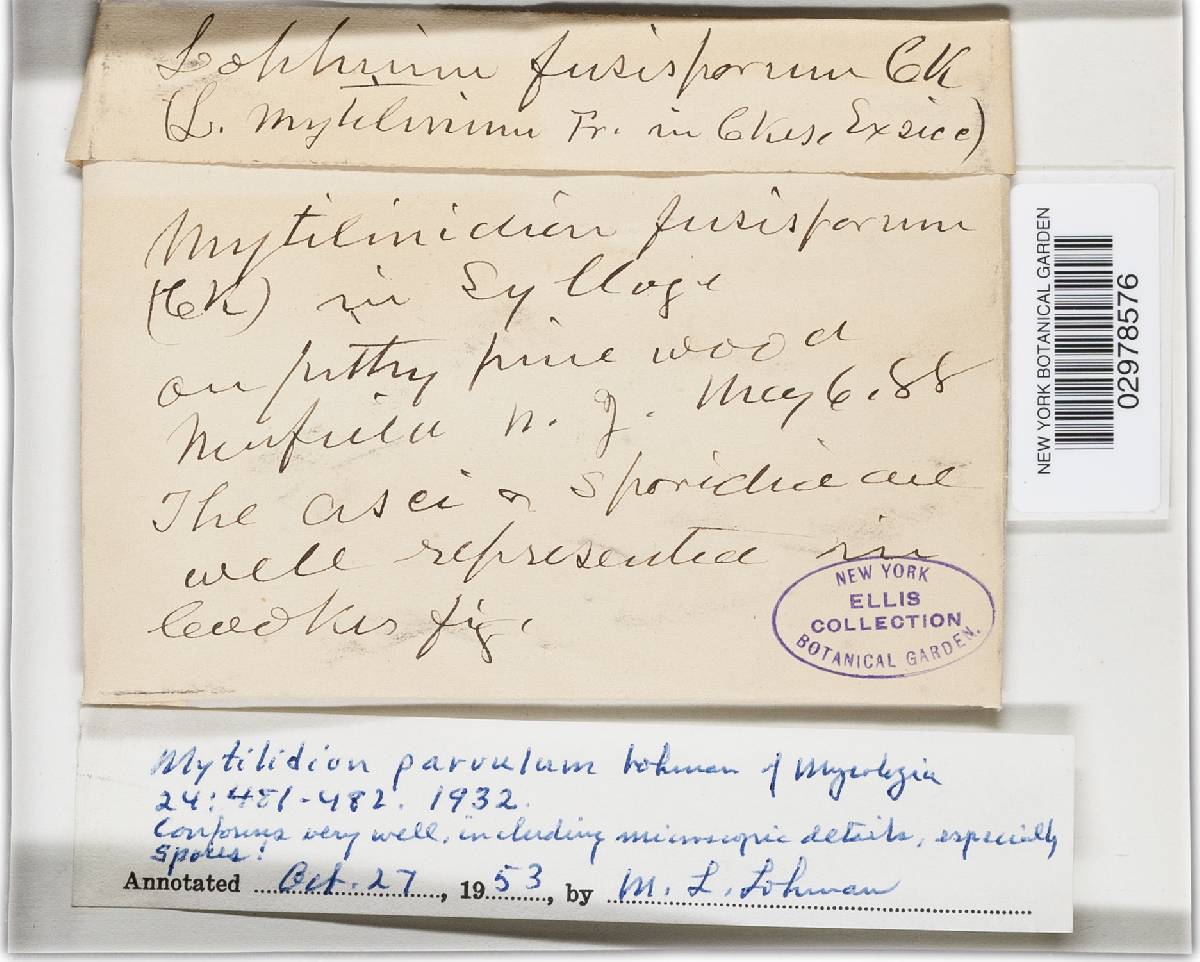 Lophium fusisporum CK
(L. Mytilinium Fr. in Ckes, Exsicc)
Mytilinidion fusisporum
(CK) in Sylloge
on pithy pine wood
Newfield N. J. May 6, 88
The asci & sporidia are
well represented in
Cookes fig.
NEW YORK
ELLIS
COLLECTION
BOTANICAL GARDEN.
NEW YORK BOTANICAL GARDEN
02978576
Mytilidion parvulum Lohman of Mycologia
24: 481-482. 1932.
Conforms very well, including microscopic details, especially
spores!
Annotated Oct. 27, 1953, by M. L. Lohman